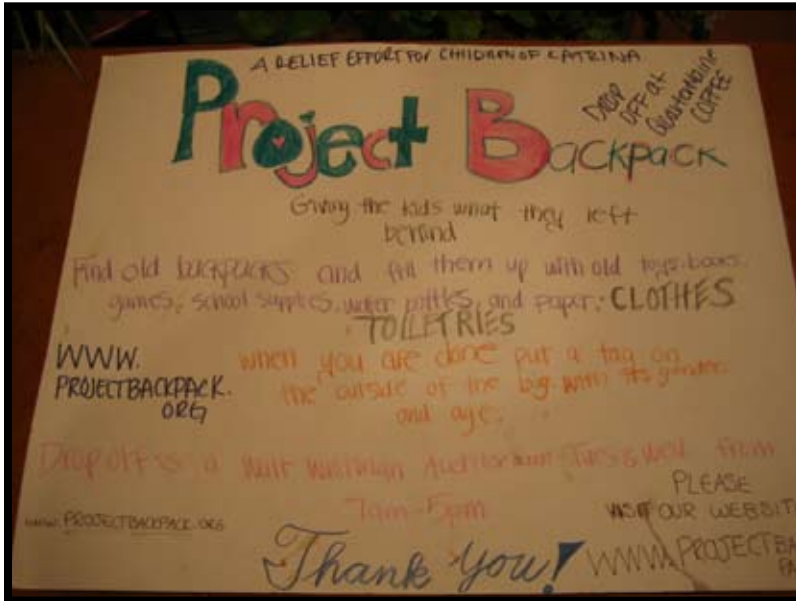 A RELIEF EFFORT FOR CHILDREN OF CATRINA
Project Backpack
DROP
OFF at
COFFEE
Giving the kids what they left
behind
Find old backpacks and fill them up with old toys, books,
games, school supplies, water bottles, and paper. CLOTHES
TOILETRIES
WWW.
PROJECTBACKPACK.
ORG
when you are done put a tag on
the outside of the bag with its gender
and age.
Drop off is a Walt Whitman Auditorium Tues & Wed from
7am-5pm
www.PROJECTBACKPACK.ORG
PLEASE
VISIT OUR WEBSIT
WWW.PROJECTBA
Thank You!